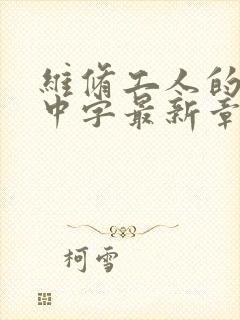 維脩工人的
中字最新章
柯雪